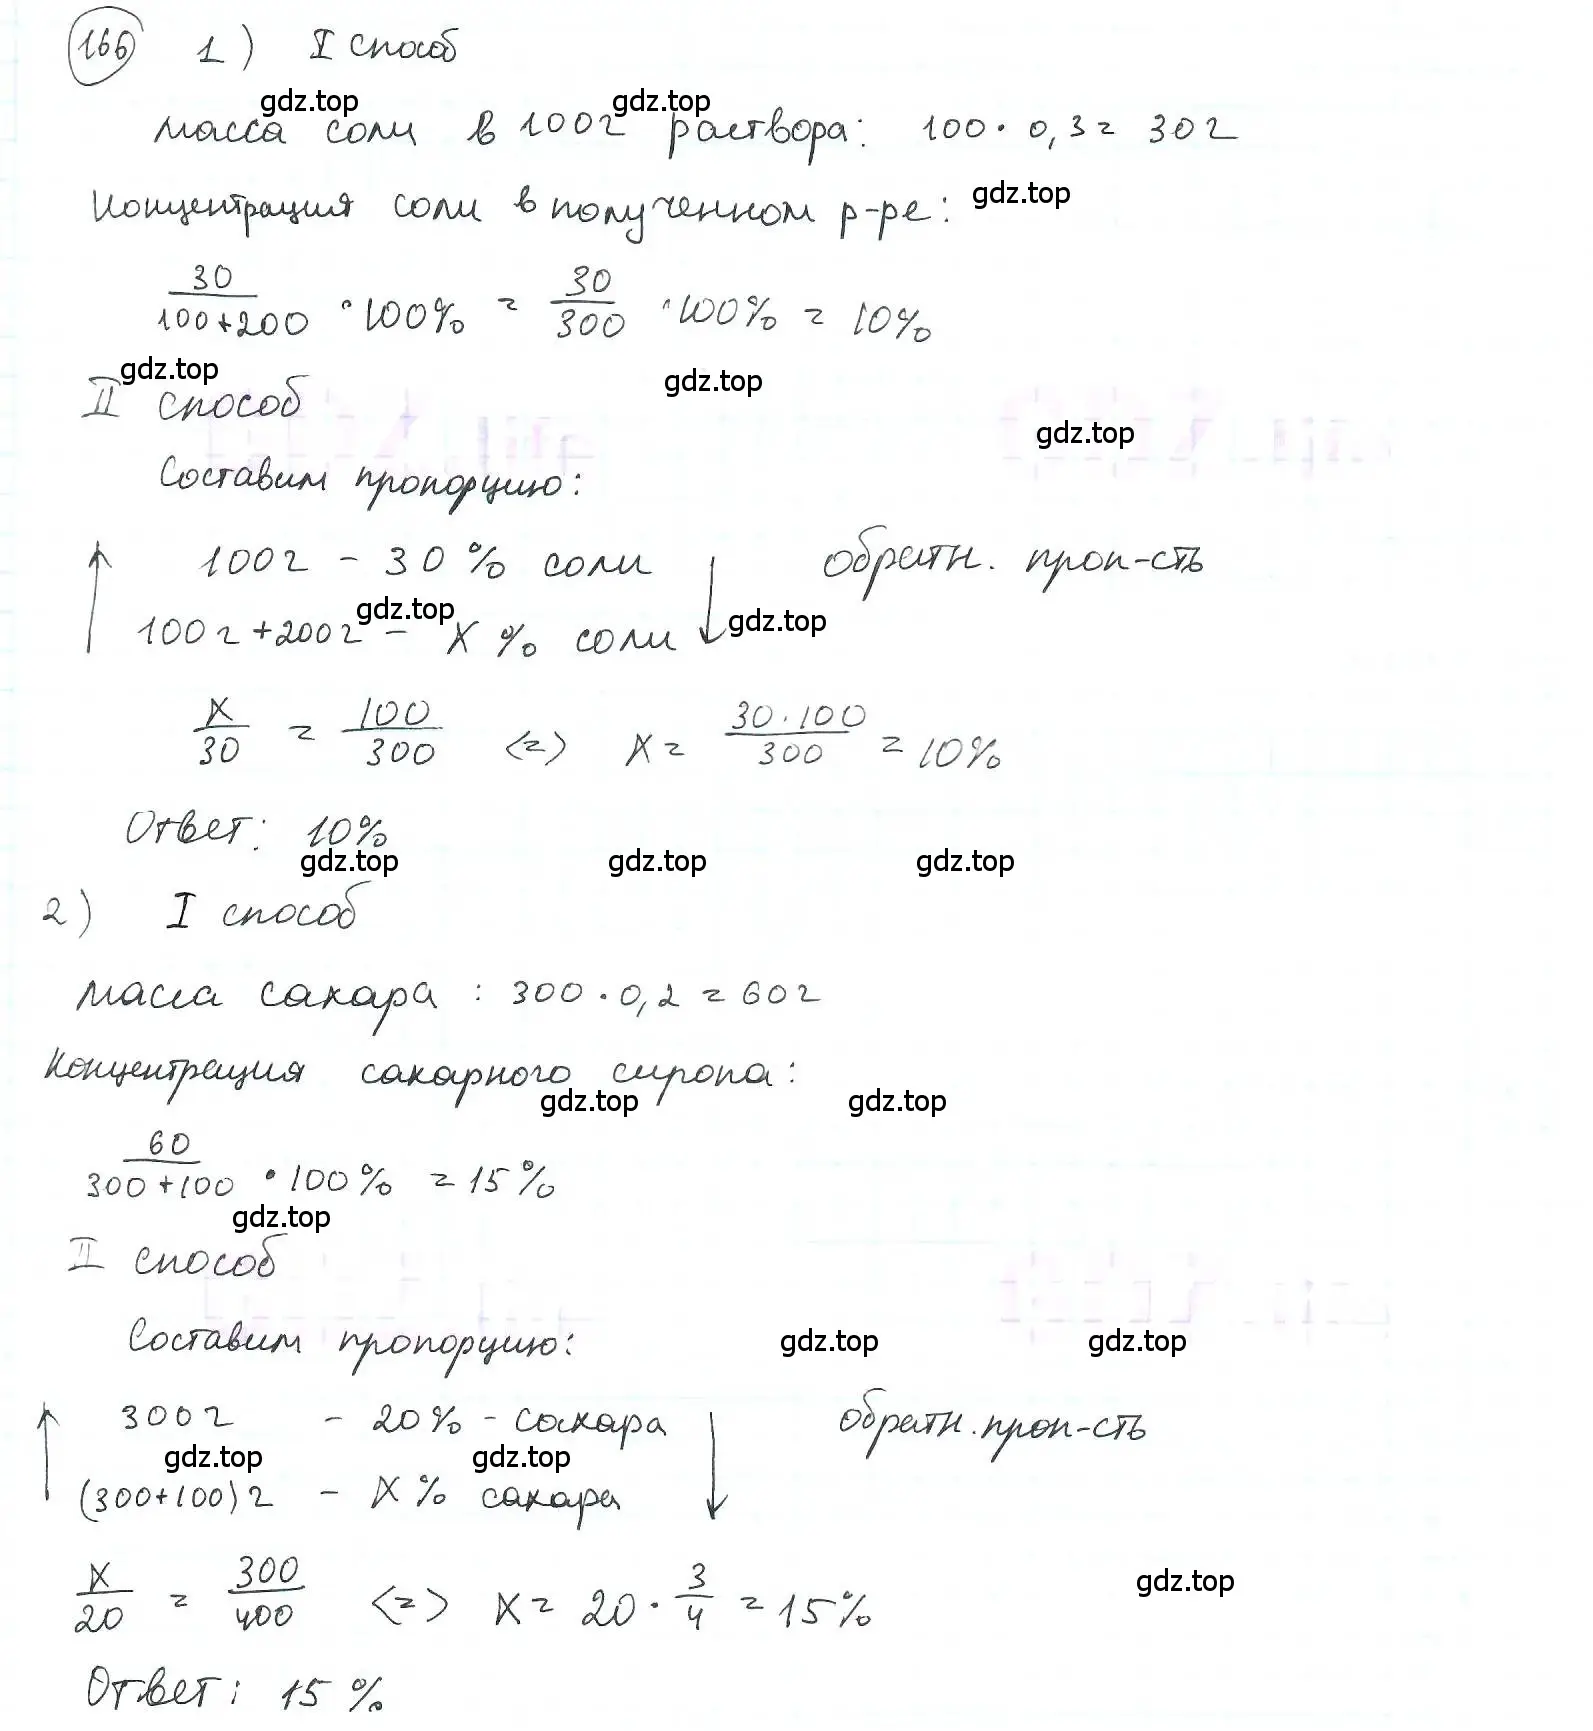 166 1) I способ
gdz.top gdz.top
масса соли в 100г раствора: 100 · 0,3 = 30г
Концентрация соли в полученном р-ре: gdz.top
30/(100+200) · 100% = 30/300 · 100% = 10%
gdz.top gdz.top
II способ
gdz.top
Составим пропорцию:
100г - 30% соли обратн. проп-сть
gdz.top gdz.top
100г+200г - X% соли
X/30 = 100/300 <=> X = 30·100/300 = 10%
Ответ: 10%
gdz.top gdz.top gdz.top
2) I способ
масса сахара : 300 · 0,2 = 60г
Концентрация сахарного сиропа:
gdz.top gdz.top
60/(300+100) · 100% = 15%
gdz.top
II способ
Составим пропорцию:
gdz.top gdz.top
300г - 20% - сахара обратн. проп-сть
gdz.top gdz.top
(300+100)г - X% сахара
X/20 = 300/400 <=> X = 20 · 3/4 = 15%
gdz.top
Ответ: 15%